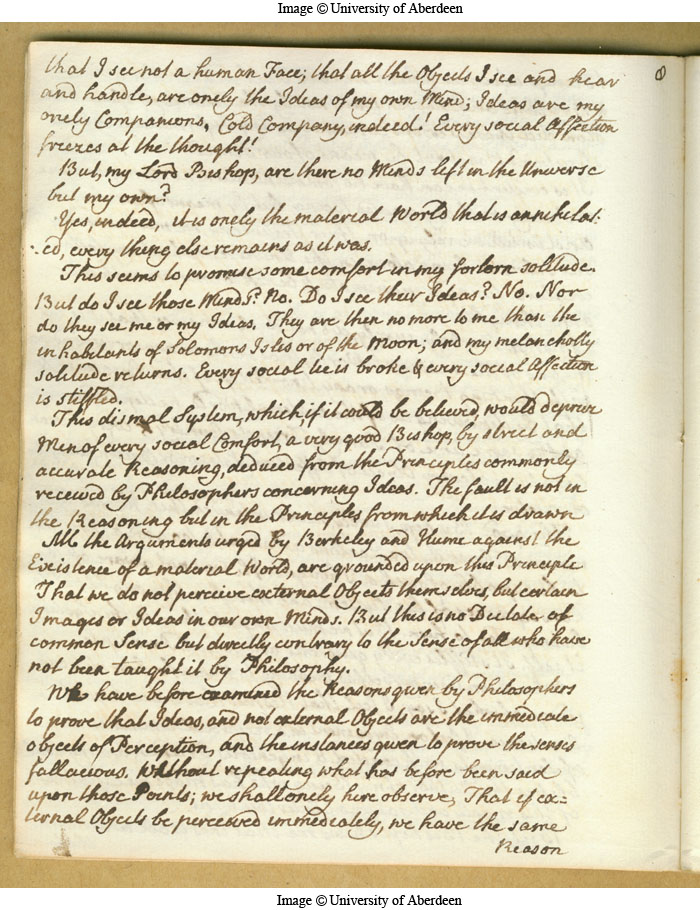 Image © University of Aberdeen
8
that I see not a human Face; that all the Objects I see and hear
and handle, are onely the Ideas of my own Mind; Ideas are my
onely Companions, Cold Company, indeed! Every social Affection
freezes at the thought!
But, my Lord Bishop, are there no Minds left in the Universe
but my own?
Yes, indeed, it is onely the material World that is annihilat:
:ed, every thing else remains as it was.
This seems to promise some comfort in my forlorn solitude.
But do I see those Minds? No. Do I see their Ideas? No. Nor
do they see me or my Ideas. They are then no more to me than the
inhabitants of Solomons Isles or of the Moon; and my melancholly
solitude returns. Every social tie is broke & every social Affection
is stiffled.
This dismal System, which, if it could be believed, would deprive
Men of every social Comfort, a very good Bishop, by strict and
accurate Reasoning, deduced from the Principles commonly
received by Philosophers concerning Ideas. The fault is not in
the Reasoning but in the Principles from which it is drawn
All the Arguments urged by Berkeley and Hume against the
Existence of a material World, are grounded upon this Principle
That we do not perceive external Objects themselves, but certain
Images or Ideas in our own Minds. But this is no Dictate of
common Sense but directly contrary to the Sense of all who have
not been taught it by Philosophy.
We have before examined the Reasons given by Philosophers
to prove that Ideas, and not external Objects are the immediate
objects of Perception, and the instances given to prove the senses
fallacious. Without repeating what has before been said
upon those Points; we shall onely here observe, That if ex=
ternal Objects be perceived immediately, we have the same
Reason
Image © University of Aberdeen